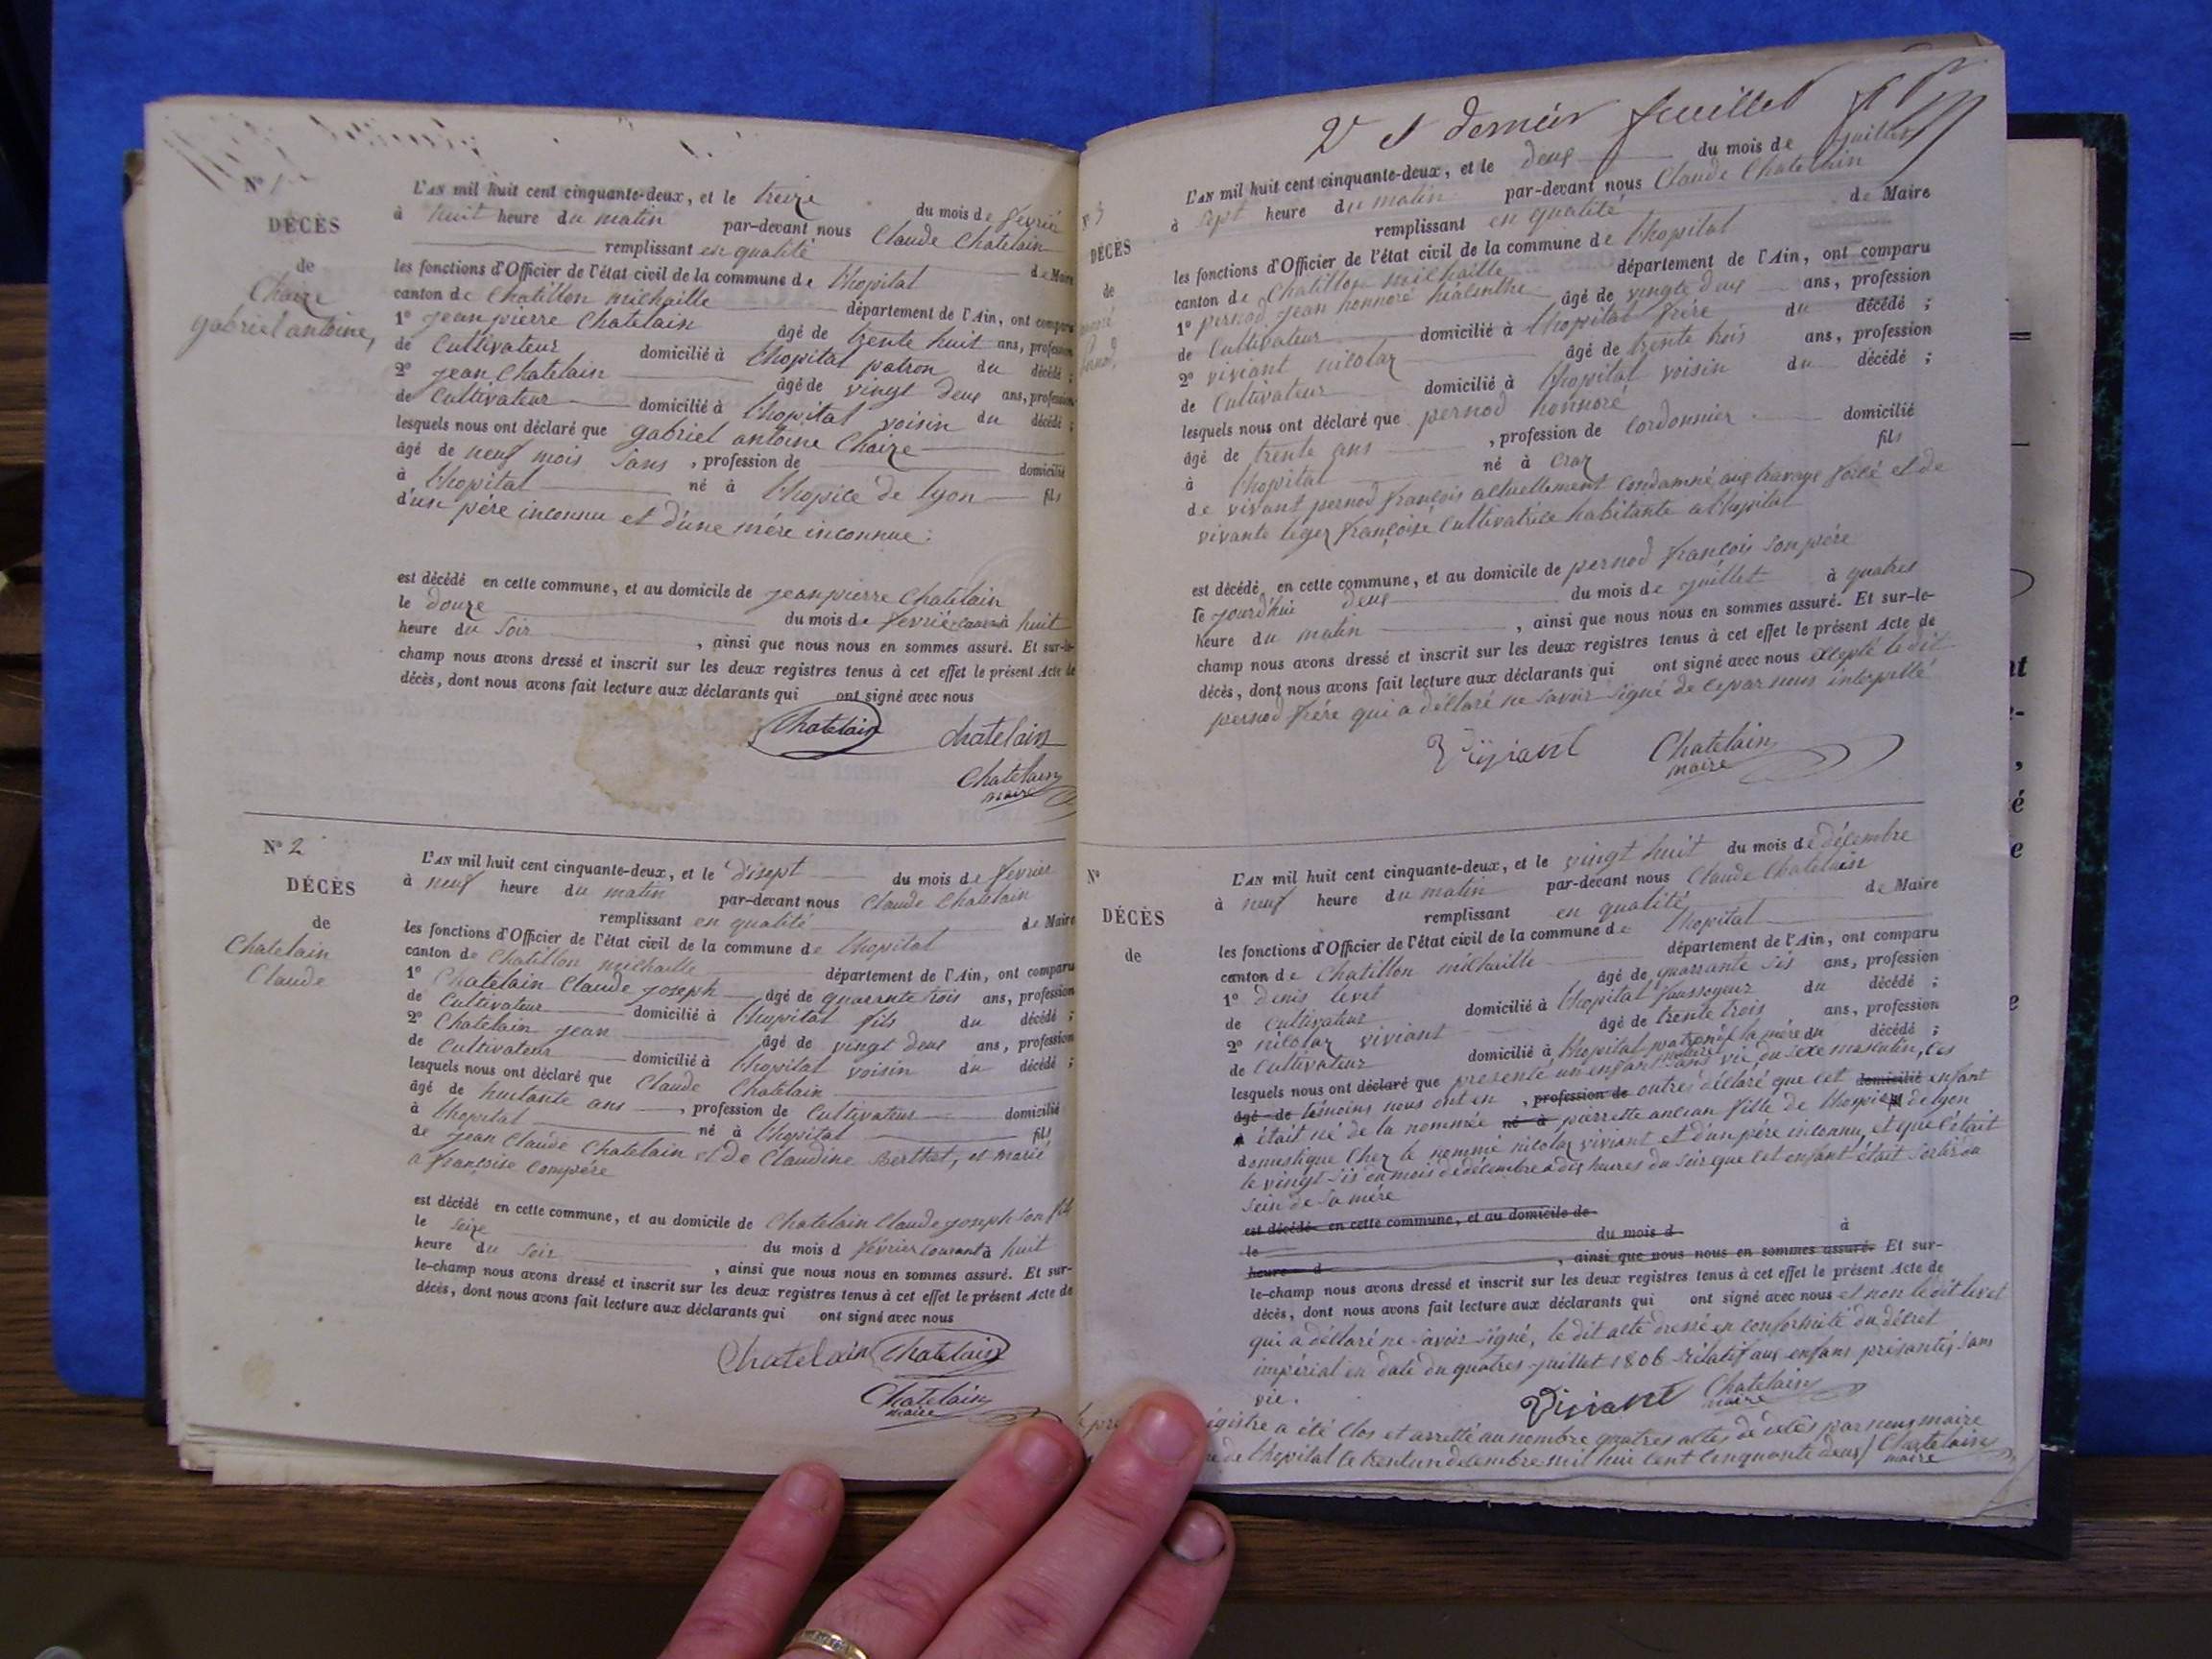 N° 1
DÉCÈS
de
Chaize
gabriel antoine,
L'AN mil huit cent cinquante-deux, et le treize du mois de fevrié
à huit heure du matin par-devant nous Claude Chatelain
remplissant en qualité de Maire
les fonctions d'Officier de l'état civil de la commune de lhopital
canton de Chatillon michaille département de l'Ain, ont comparu
1° Jean pierre Chatelain âgé de trente huit ans, profession
de Cultivateur domicilié à lhopital patron du décédé ;
2° Jean Chatelain âgé de vingt deux ans, profession
de Cultivateur domicilié à lhopital voisin du décédé ;
lesquels nous ont déclaré que gabriel antoine Chaize
âgé de neuf mois sans , profession de domicilié
à lhopital né à lhopice de lyon fils
d'un père inconnu et d'une mère inconnue.
est décédé en cette commune, et au domicile de Jeanpierre Chatelain
le douze du mois de fevrié à huit
heure du soir , ainsi que nous nous en sommes assuré. Et sur-le-
champ nous avons dressé et inscrit sur les deux registres tenus à cet effet le présent Acte de
décès, dont nous avons fait lecture aux déclarants qui ont signé avec nous
Chatelain Chatelain
Chatelain
maire
N° 2
DÉCÈS
de
Chatelain
Claude
L'AN mil huit cent cinquante-deux, et le disept du mois de fevrier
à neuf heure du matin par-devant nous Claude Chatelain
remplissant en qualité de Maire
les fonctions d'Officier de l'état civil de la commune de lhopital
canton de Chatillon michaille département de l'Ain, ont comparu
1° Chatelain Claude Joseph âgé de quarante trois ans, profession
de Cultivateur domicilié à lhopital fils du décédé ;
2° Chatelain Jean âgé de vingt deux ans, profession
de Cultivateur domicilié à lhopital voisin du décédé ;
lesquels nous ont déclaré que Claude Chatelain
âgé de huitante ans , profession de Cultivateur domicilié
à lhopital né à lhopital fils
de Jean Claude Chatelain et de Claudine Berthet, et marié
a françoise Compère
est décédé en cette commune, et au domicile de Chatelain Claude Joseph son fils
le seize du mois d février courant à huit
heure du soir , ainsi que nous nous en sommes assuré. Et sur-
le-champ nous avons dressé et inscrit sur les deux registres tenus à cet effet le présent Acte de
décès, dont nous avons fait lecture aux déclarants qui ont signé avec nous
Chatelain Chatelain
Chatelain
maire
2e et dernier feuillet
N° 3
DÉCÈS
de
L'AN mil huit cent cinquante-deux, et le deux du mois de juillet
à sept heure du matin par-devant nous Claude Chatelain
remplissant en qualité de Maire
les fonctions d'Officier de l'état civil de la commune de lhopital
canton de Chatillon michaille département de l'Ain, ont comparu
1° pernod Jean honnoré hiacinthe âgé de vingte deux ans, profession
de Cultivateur domicilié à lhopital frère du décédé ;
2° viviant nicolaz âgé de trente trois ans, profession
de Cultivateur domicilié à lhopital voisin du décédé ;
lesquels nous ont déclaré que pernod honnoré
âgé de trente ans , profession de Cordonnier domicilié
à lhopital né à Craz fils
de vivant pernod françois actuellement Condamné aux travaux forcé et de
vivante leger françoise Cultivatrice habitante a lhopital
est décédé en cette commune, et au domicile de pernod françois son père
le jourd'hui deux du mois de juillet à quatres
heure du matin , ainsi que nous nous en sommes assuré. Et sur-le-
champ nous avons dressé et inscrit sur les deux registres tenus à cet effet le présent Acte de
décès, dont nous avons fait lecture aux déclarants qui ont signé avec nous excepté le dit
pernod frère qui a déclaré ne savoir signé de ce par nous interpellé
Viviant Chatelain
maire
N°
DÉCÈS
de
L'AN mil huit cent cinquante-deux, et le vingt huit du mois de décembre
à neuf heure du matin par-devant nous Claude Chatelain
remplissant en qualité de Maire
les fonctions d'Officier de l'état civil de la commune de lhopital
canton de Chatillon michaille département de l'Ain, ont comparu
1° denis levet âgé de quarante sis ans, profession
de Cultivateur domicilié à lhopital faussoyeur du décédé ;
2° nicolaz viviant âgé de trente trois ans, profession
de Cultivateur domicilié à lhopital patron de la mère du décédé ;
lesquels nous ont déclaré que presenté un enfant sans vie du sexe masculin, les
âgé de témoins nous ont en , profession de outres déclaré que cet domicilié enfant
à était né de la nommée né à pierrette ancian fille de lhopice de lyon
domestique Chez le nommé nicolaz viviant et d'un père inconnu, et que c'était
le vingt-sis du mois de décembre a dix heures du soir que cet enfant était sorti du
sein de sa mère
est décédé en cette commune, et au domicile de
le du mois d à
heure d , ainsi que nous nous en sommes assuré. Et sur-
le-champ nous avons dressé et inscrit sur les deux registres tenus à cet effet le présent Acte de
décès, dont nous avons fait lecture aux déclarants qui ont signé avec nous et non le dit levet
qui a déclaré ne savoir signé, le dit acte dressé en conformité du décret
impérial en date du quatres juillet 1806 rélatif aux enfans présentés sans
vie.
Viviant Chatelain
maire
le registre a été clos et arretté au nombre quatres actes de décès par nous maire
de lhopital le trente un décembre mil huit cent cinquante deux / Chatelain
maire